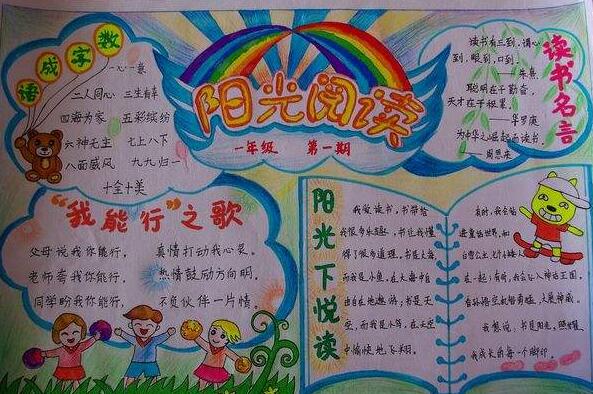 阳光阅读
一年级 第一期
数字成语
一心一意
二人同心 三生有幸
四海为家 五彩缤纷
六神无主 七上八下
八面威风 九九归一
十全十美
读书名言
读书有三到,谓心
到,眼到,口到。
——朱熹
聪明在于勤奋,
天才在于积累。
——华罗庚
为中华之崛起而读书。
——周恩来
“我能行”之歌
父母说我你能行,
真情打动我心灵。
老师夸我你能行,
热情鼓励方向明。
同学盼我你能行,
不负伙伴一片情。
阳光下悦读
我爱读书,书带给
我很多乐趣,书让我懂
得了很多道理。书是大海
而我是小鱼,在大海中自
由自在地遨游;书是天
空,而我是小鸟,在天空
中愉快地飞翔。
有时,我会钻
进童话世界,和
白雪公主、七个小矮人
在一起;有时,我会与入神话王国,
与孙悟空
大展神威。
我想说:书是阳光,照耀
我成长的每一个脚印。